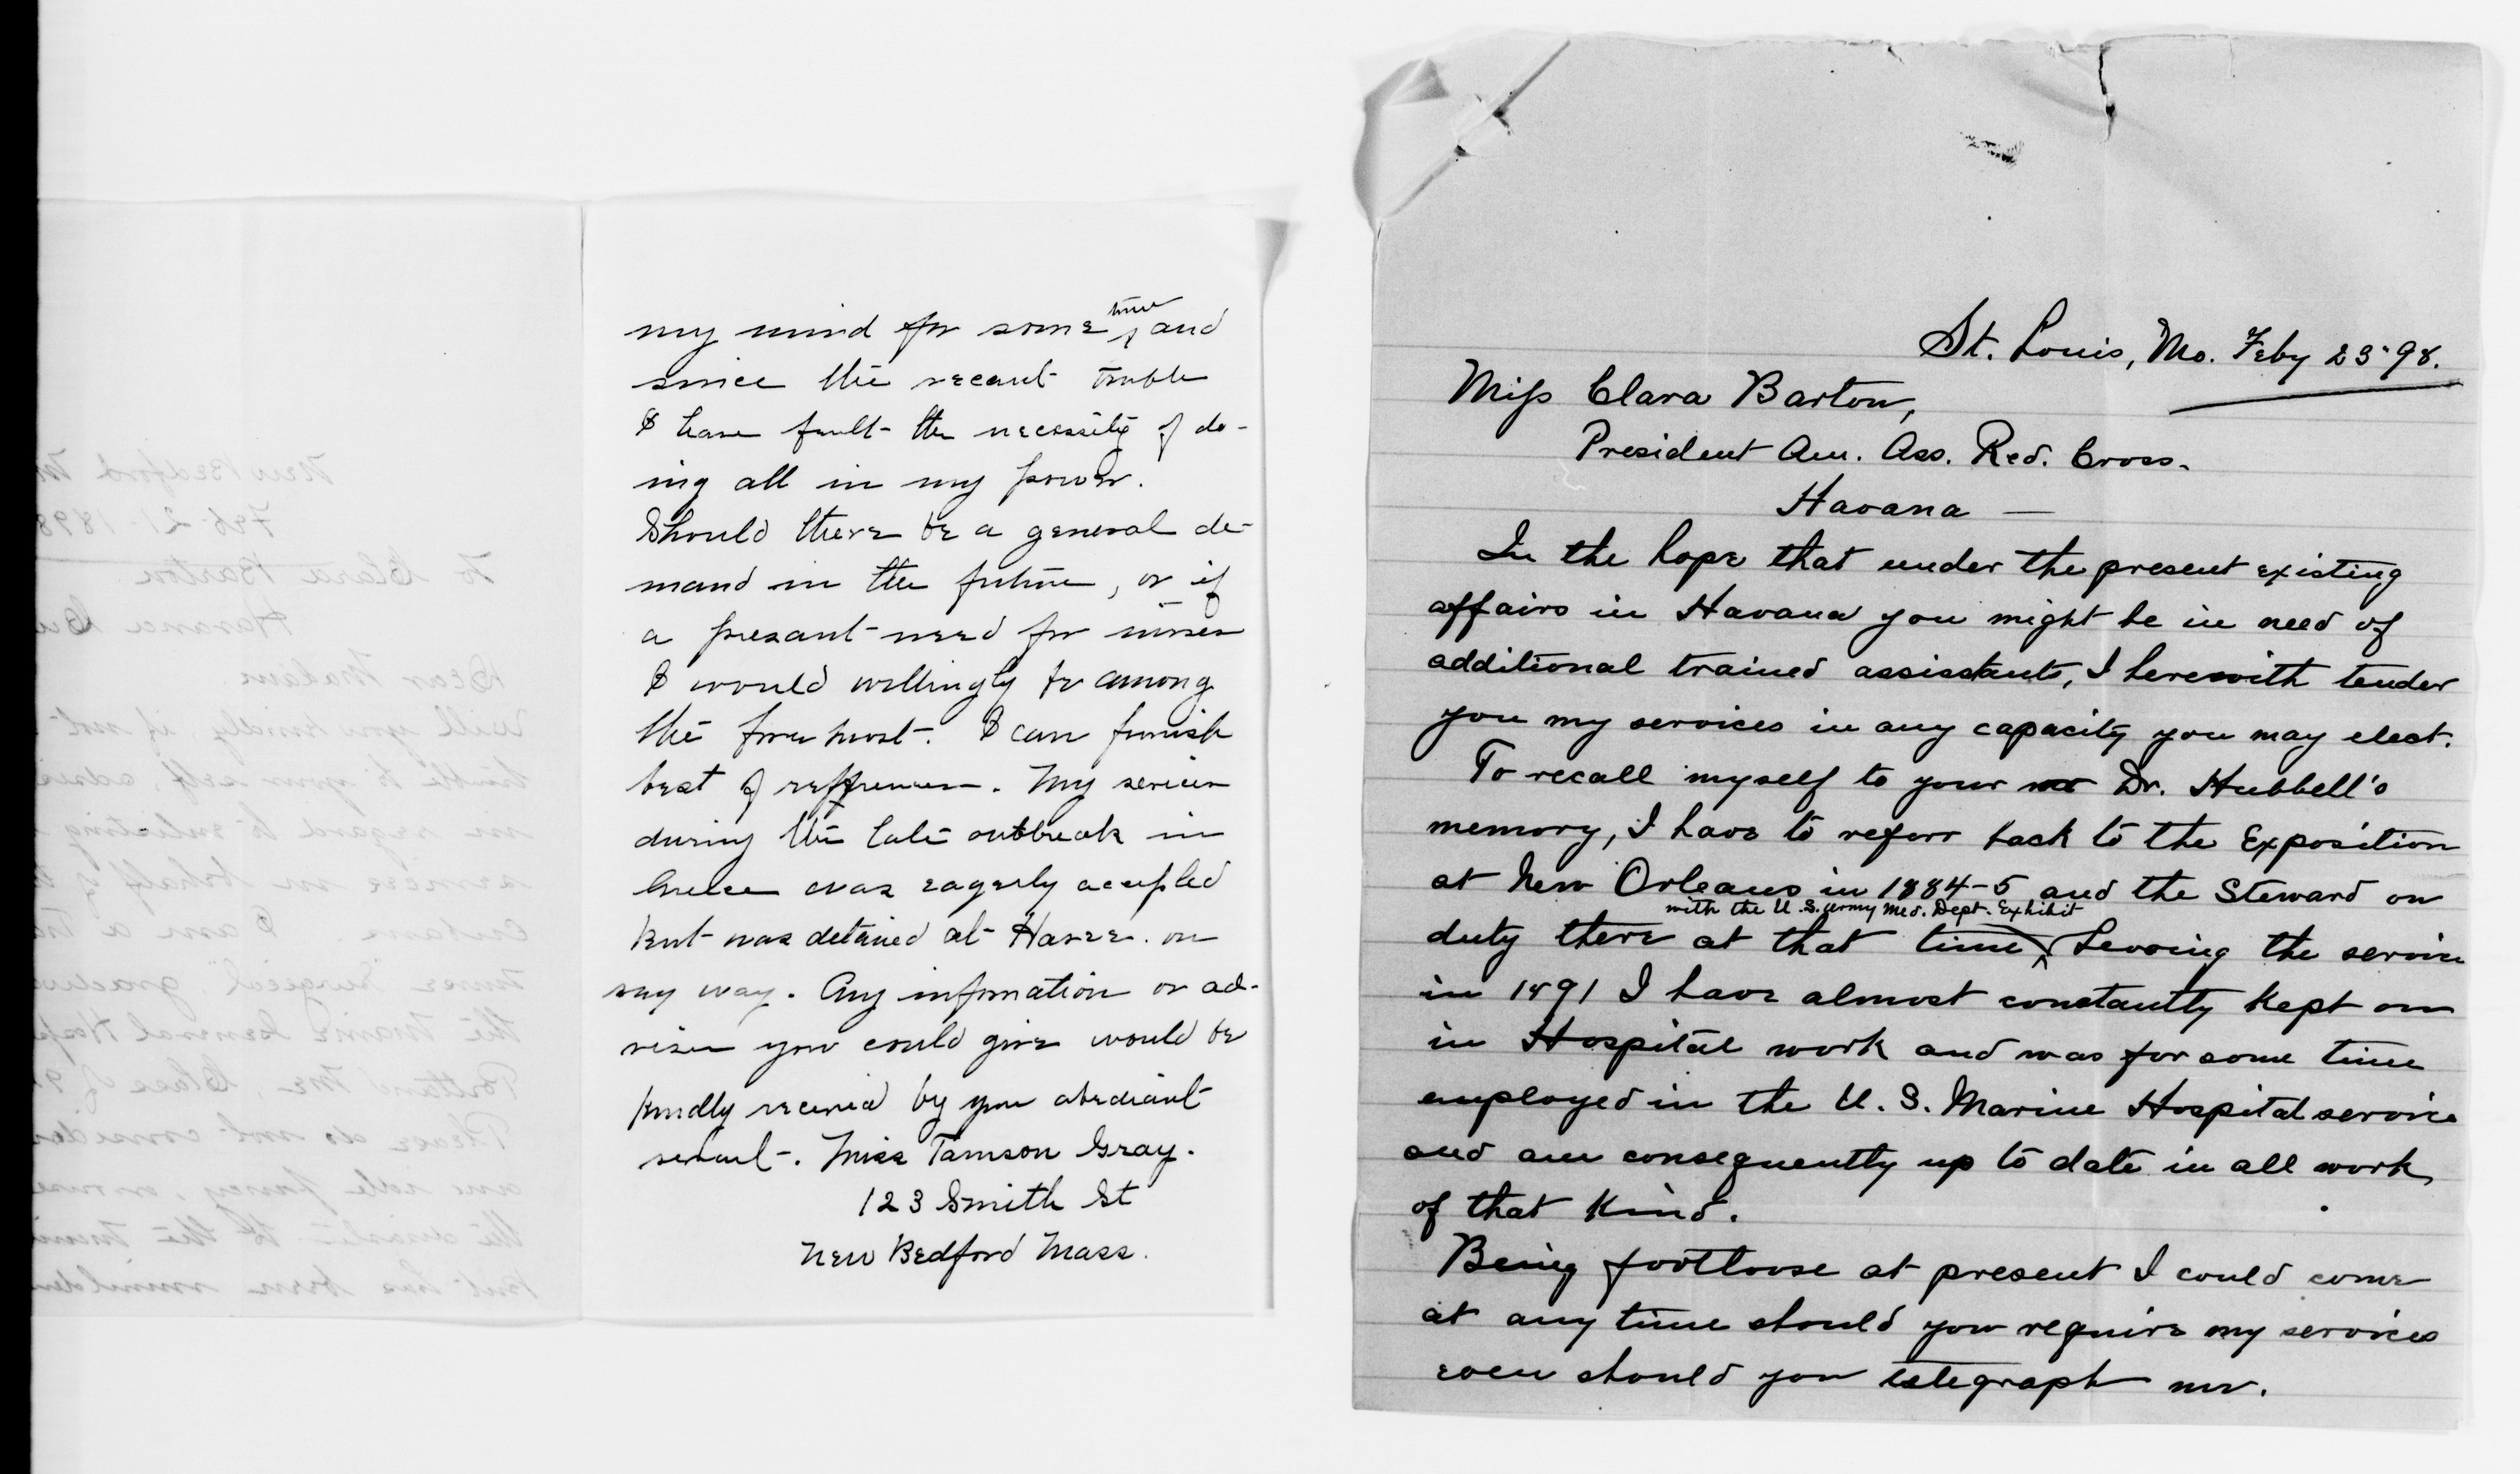 my mind for some time and
since the recant trouble
I have feult the necessity of do-
ing all in my power.
Should there be a general de-
mand in the future, or if
a presant need for nurses
I would willingly be among
the foremost. I can furnish
best of refferences. My services
during the late outbreak in
Greece was eagerly accepted
but was detained at Havre. on
my way. Any information or ad-
vise you could give would be
kindly received by your obediant
servant. Miss Tamson Gray.
123 Smith St
New Bedford Mass.
New Bedford M
Feb 21 1898
To Clara Barton
Havana Cu
Dear Madam
Will you kindly, if not
trouble to your self, advise
in regard to enlisting
service in behalf of
I am a
nurse "surgical" gradua
the Maine General Hosp
Portland Me, Class of 9
Please do not consider
and idle fancy, or
the to the
but has been
St. Louis, Mo. Feby 23" 98.
Miss Clara Barton,
President Am. Ass. Red. Cross.
Havana —
In the hope that under the present existing
affairs in Havana you might be in need of
additional trained assisstants, I herewith tender
you my services in any capacity you may elect.
To recall myself to your Dr. Hubbell's
memory, I have to referr back to the Exposition
at New Orleans in 1884-5 and the Steward on
with the U. S. Army Med. Dept. Exhibit
duty there at that time. Leaving the service
in 1891 I have almost constantly kept on
in Hospital work and was for some time
employed in the U. S. Marine Hospital service
and am consequently up to date in all work
of that kind.
Being footloose at present I could come
at any time should you require my services
even should you telegraph me.